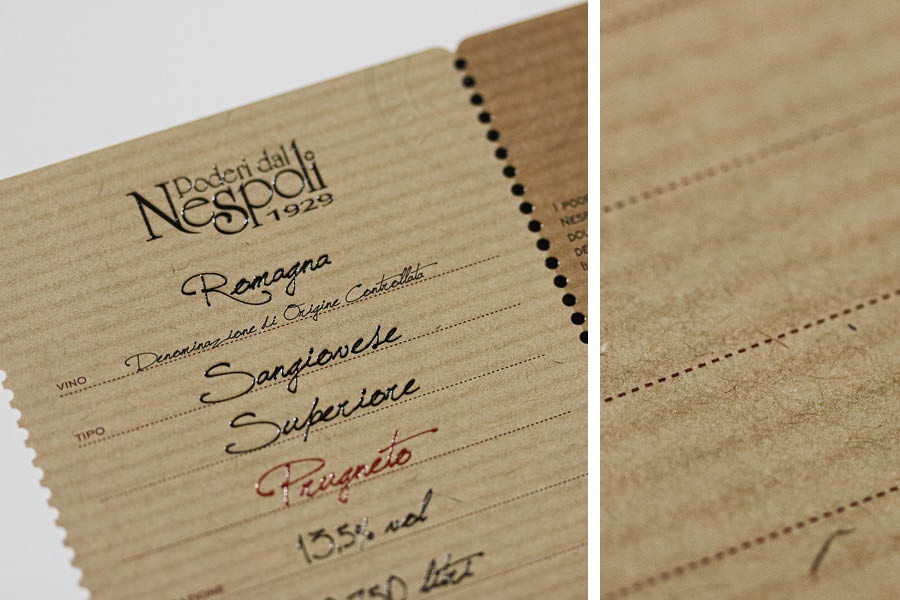 Poderi dal
Nespoli
1929
Romagna
Denominazione di Origine Controllata
VINO
Sangiovese
TIPO
Superiore
Prugneto
13,5% vol
litri